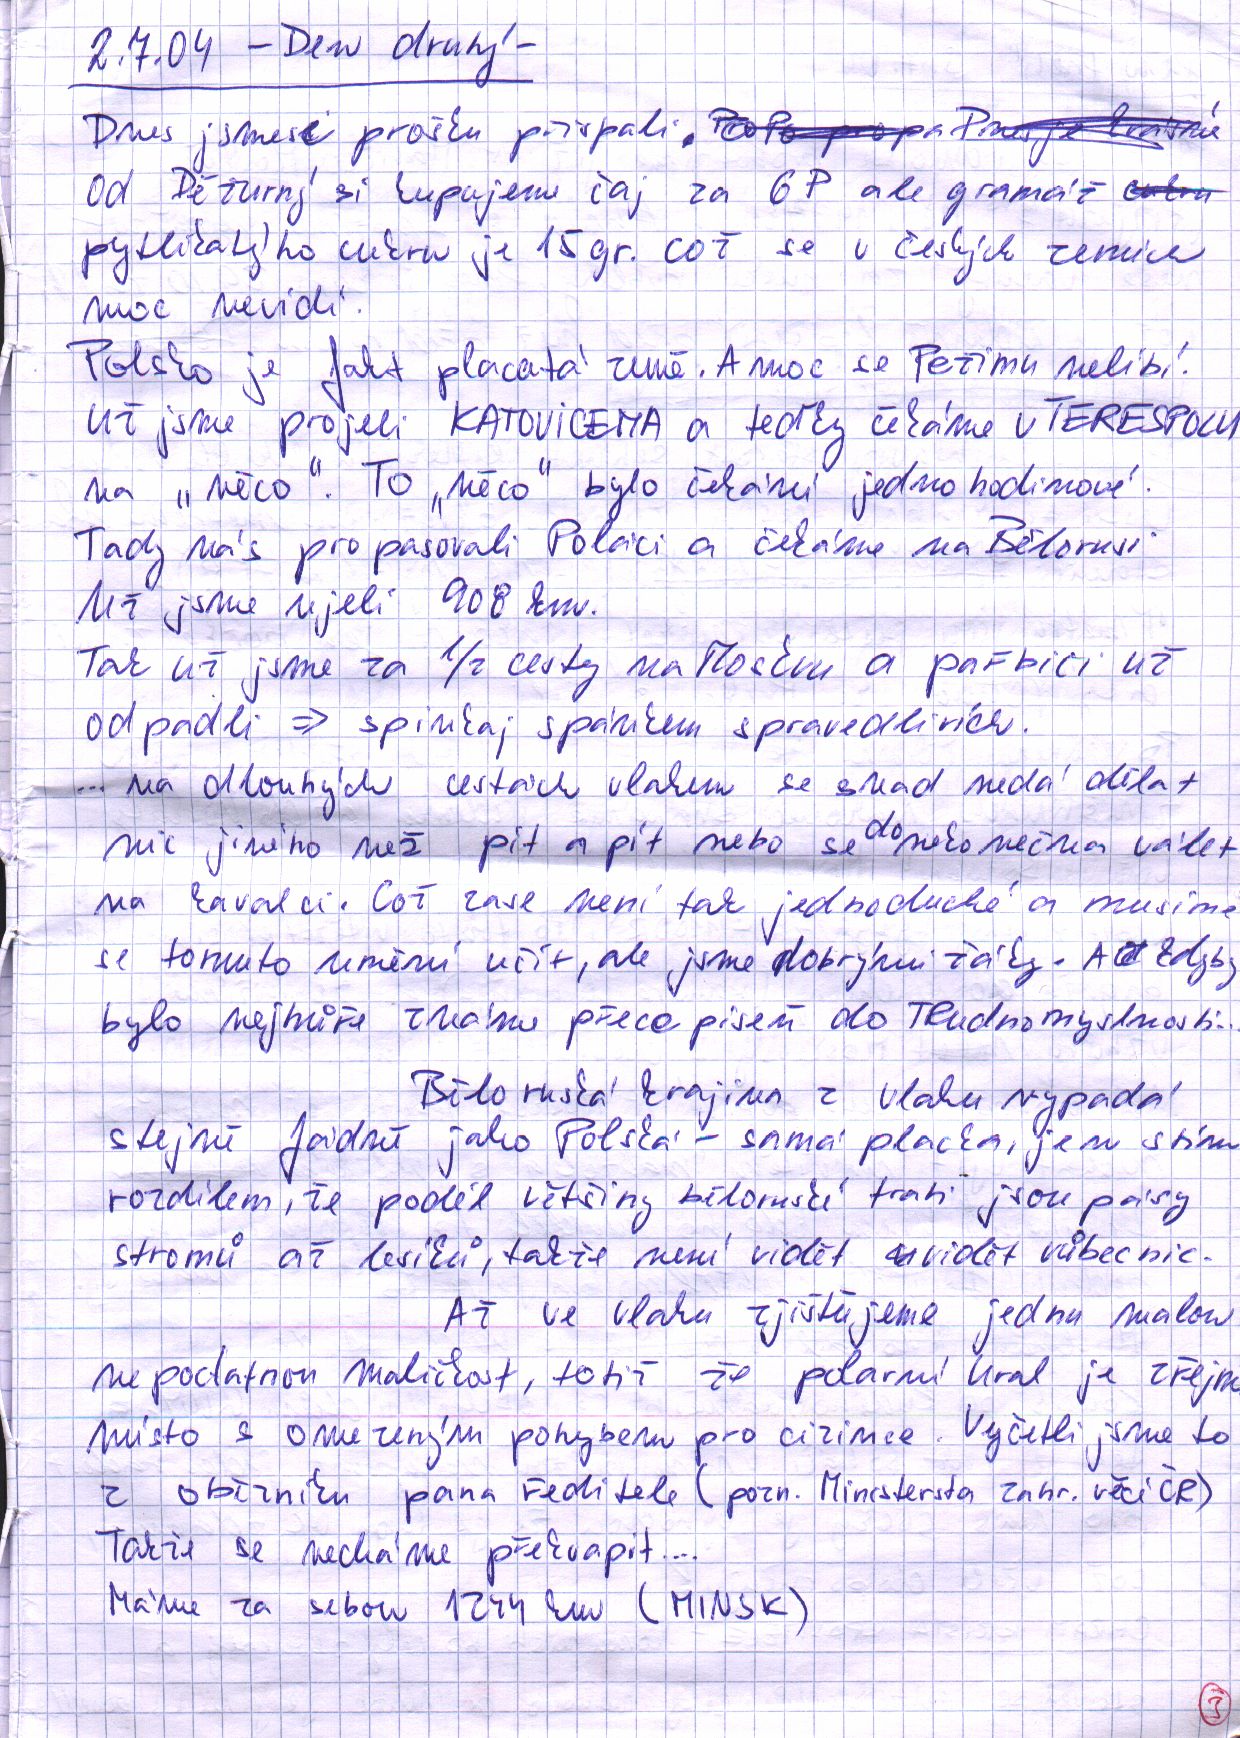 2.7.04 - Den druhý -
Dnes jsme si prošku přispali.
Od Děžurný si kupujeme čaj za 6 P ale gramáž
pytlíkatýho cukru je 15 gr. což se v českých zemích
moc nevidí.
Polsko je fakt placatá země. A moc se Pežimu nelíbí.
Už jsme projeli KATOVICEMA a teďky čekáme v TERESPOLU
na „něco“. To „něco“ bylo čekání jednohodinové.
Tady nás propasovali Poláci a čekáme na Bělorusi.
Už jsme ujeli 908 km.
Tak už jsme za 1/2 cesty na Moskvu a pařbiči už
odpadli => spinkaj spánkem spravedlivích.
... na dlouhých cestách vlakem se snad nedá dělat
nic jiného než pít a pít nebo se donekonečna válet
na kavalci. Což zase není tak jednoduché a musíme
se tomuto umění učit, ale jsme dobrými žáky. A kdyby
bylo nejhůře známe přece píseň do Trudnomyslnosti...
Běloruská krajina z vlaku vypadá
stejně fádně jako Polská - samá placka, jen s tím
rozdílem, že podél většiny běloruské trati jsou pásy
stromů až lesíků, takže není vidět vidět vůbec nic.
Až ve vlaku zjišťujeme jednu malou
nepodatnou maličkost, totiž že polární Ural je zřejmě
místo s omezeným pohybem pro cizince. Vyčetli jsme to
z oběžníku pana ředitele (pozn. Ministersta zahr. věcí ČR)
Takže se necháme překvapit....
Máme za sebou 1244 km (MINSK)
3